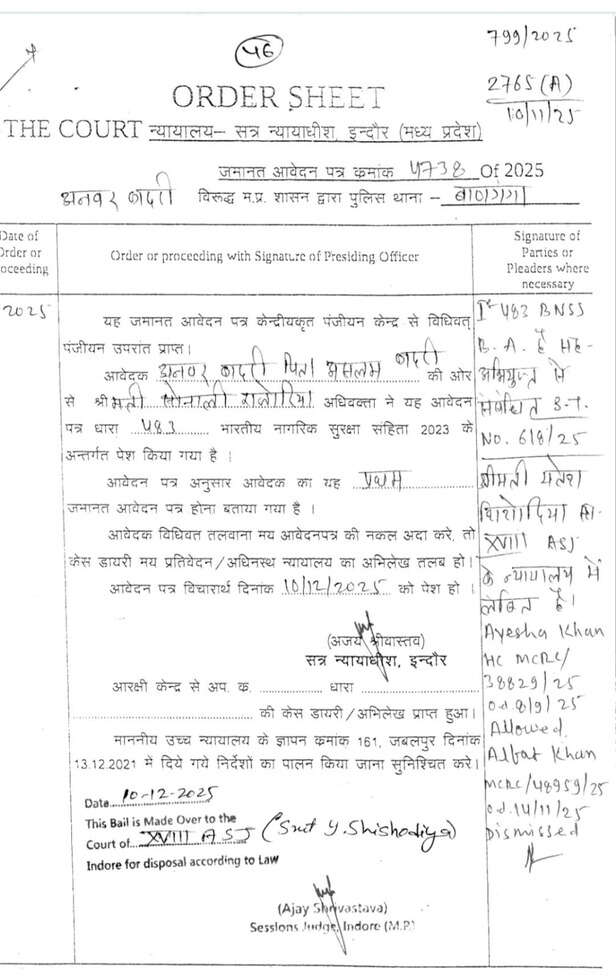 799/2025
46
2765 (A)
10/11/25
ORDER SHEET
THE COURT न्यायालय– सत्र न्यायाधीश, इन्दौर (मध्य प्रदेश)
जमानत आवेदन पत्र क्रमांक 4738 Of 2025
अनवर कादरी विरूद्ध म.प्र. शासन द्वारा पुलिस थाना – बाणगंगा
Date of
Order or
oceeding
Order or proceeding with Signature of Presiding Officer
Signature of
Parties or
Pleaders where
necessary
2025
यह जमानत आवेदन पत्र केन्द्रीयकृत पंजीयन केन्द्र से विधिवत्
पंजीयन उपरांत प्राप्त।
आवेदक अनवर कादरी पिता असलम कादरी की ओर
से श्रीमती सोनाली अधिवक्ता ने यह आवेदन
पत्र धारा 483 भारतीय नागरिक सुरक्षा संहिता 2023 के
अन्तर्गत पेश किया गया है ।
आवेदन पत्र अनुसार आवेदक का यह प्रथम
जमानत आवेदन पत्र होना बताया गया है ।
आवेदक विधिवत तलवाना मय आवेदनपत्र की नकल अदा करे, तो
केस डायरी मय प्रतिवेदन/अधिनस्थ न्यायालय का अभिलेख तलब हो।
आवेदन पत्र विचारार्थ दिनांक 10/12/2025 को पेश हो ।
(अजय श्रीवास्तव)
सत्र न्यायाधीश, इन्दौर
आरक्षी केन्द्र से अप. क. धारा
की केस डायरी/अभिलेख प्राप्त हुआ।
माननीय उच्च न्यायालय के ज्ञापन क्रमांक 161, जबलपुर दिनांक
13.12.2021 में दिये गये निर्देशों का पालन किया जाना सुनिश्चित करे।
Date 10-12-2025
This Bail is Made Over to the
Court of XVIII ASJ (Smt Y. Shishodiya)
Indore for disposal according to Law
(Ajay Shrivastava)
Sessions Judge, Indore (M.P.)
Ist 483 BNSS
B.A. है सह-
अभियुक्त से
संबंधित S.T.
No. 618/25
श्रीमती
XVIII ASJ
के न्यायालय में
लंबित है।
Ayesha Khan
HC MCRC/
38829/25
o.d. 8/9/25
Allowed
Albat Khan
MCRC/48959/25
o.d. 14/11/25
Dismissed